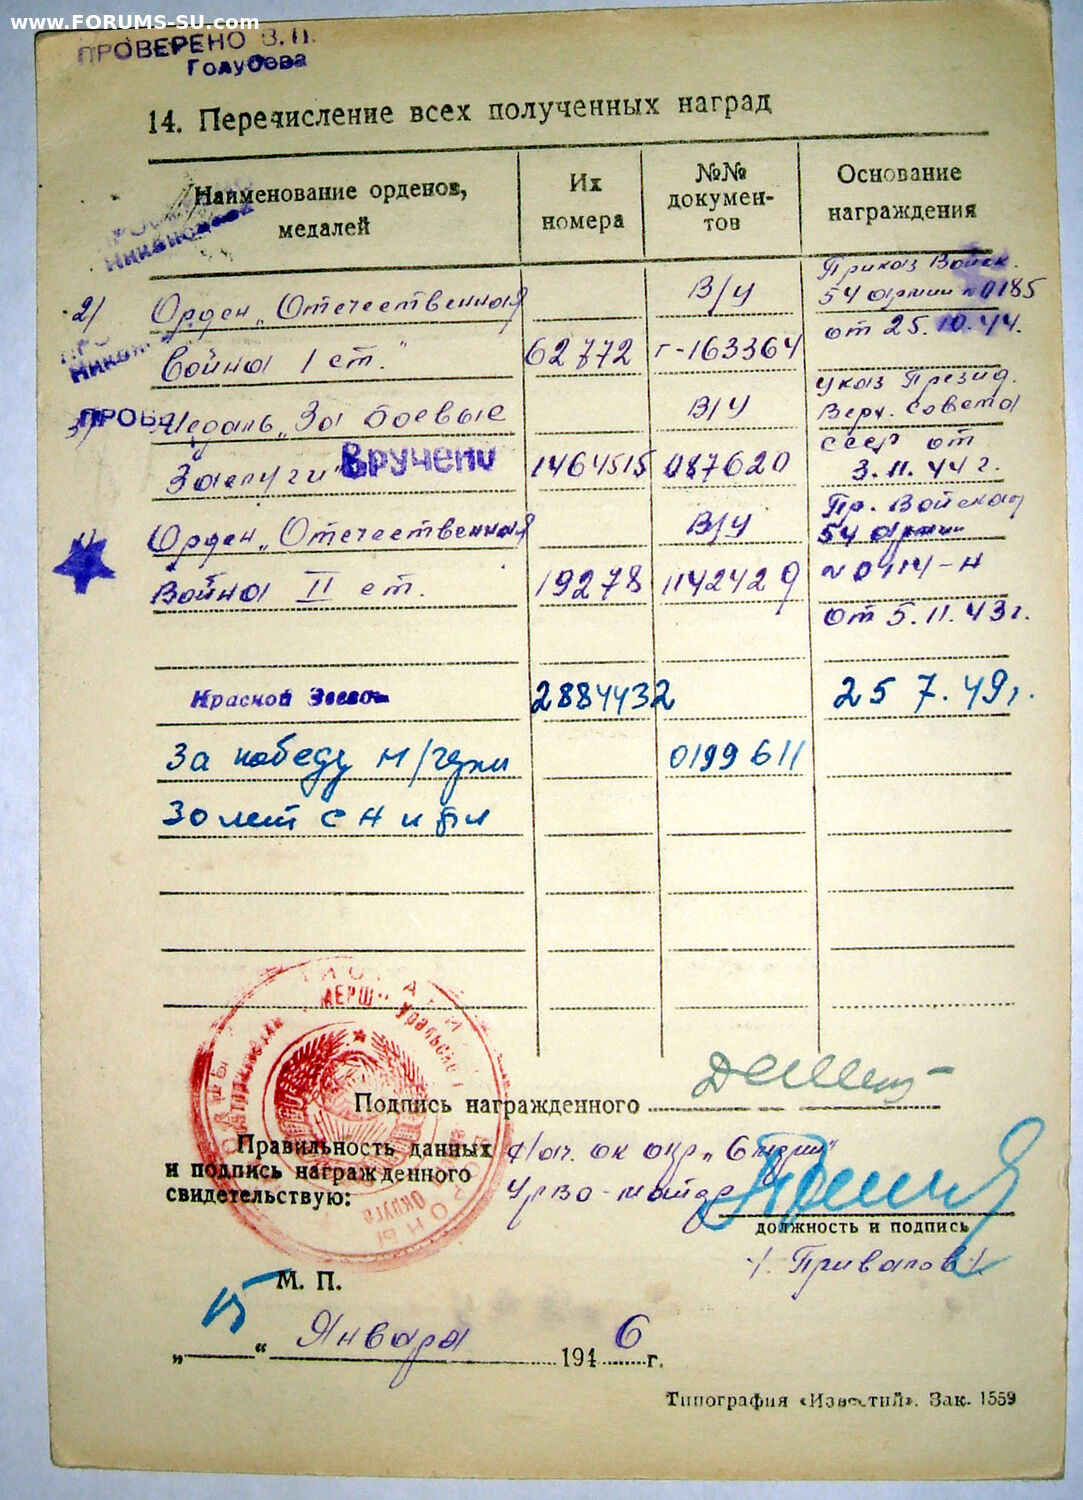 www.FORUMS-SU.com
ПРОВЕРЕНО В.П.
Голубева
14. Перечисление всех полученных наград
Наименование орденов, медалей
Их номера
№№ документов
Основание награждения
2) Орден „Отечественная Война I ст."
62772
В/У
г-163364
Приказ Войск.
54 армии №0185
от 25.10.44.
3) Медаль „За боевые Заслуги"
Вручени
1464515
В/У
087620
Указ Презид.
Верх. Совета
СССР от
3.11.44г.
Орден „Отечественная Война II ст.
19278
В/У
1142429
Пр. Войскам
54 армии
от 5.11.43г.
Красной
2884432
25 7.49г.
За победу
0199611
30 лет
Подпись награжденного
Правильность данных
и подпись награжденного
свидетельствую:
УрВО-майор
должность и подпись
/Привалов/
М. П.
„15“ Января 1946 г.
Типография «Известий». Зак. 1559